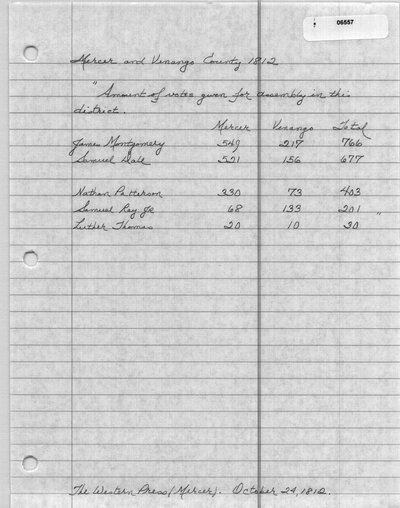 06557
Mercer and Venango County 1812
"Amount of votes given for assembly in this
district.
Mercer Venango Total
James Montgomery 549 217 766
Samuel Hall 521 156 677
Nathan Patterson 330 73 403
Samuel Ray Jr 68 133 201 "
Luther Thomas 20 10 30
The Western Press (Mercer). October 24, 1812.